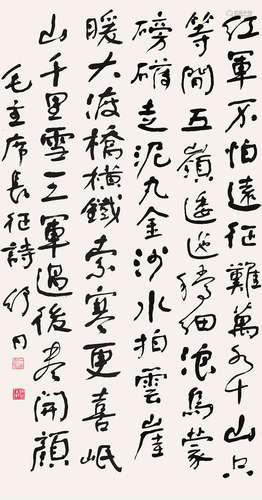 紅軍不怕遠征難萬水千山只
等間五嶺逶迤騰細浪烏蒙
磅礴走泥丸金沙水拍雲崖
暖大渡橋橫鐵索寒更喜岷
山千里雪三軍過後盡開顏
毛主席長征詩 舒同